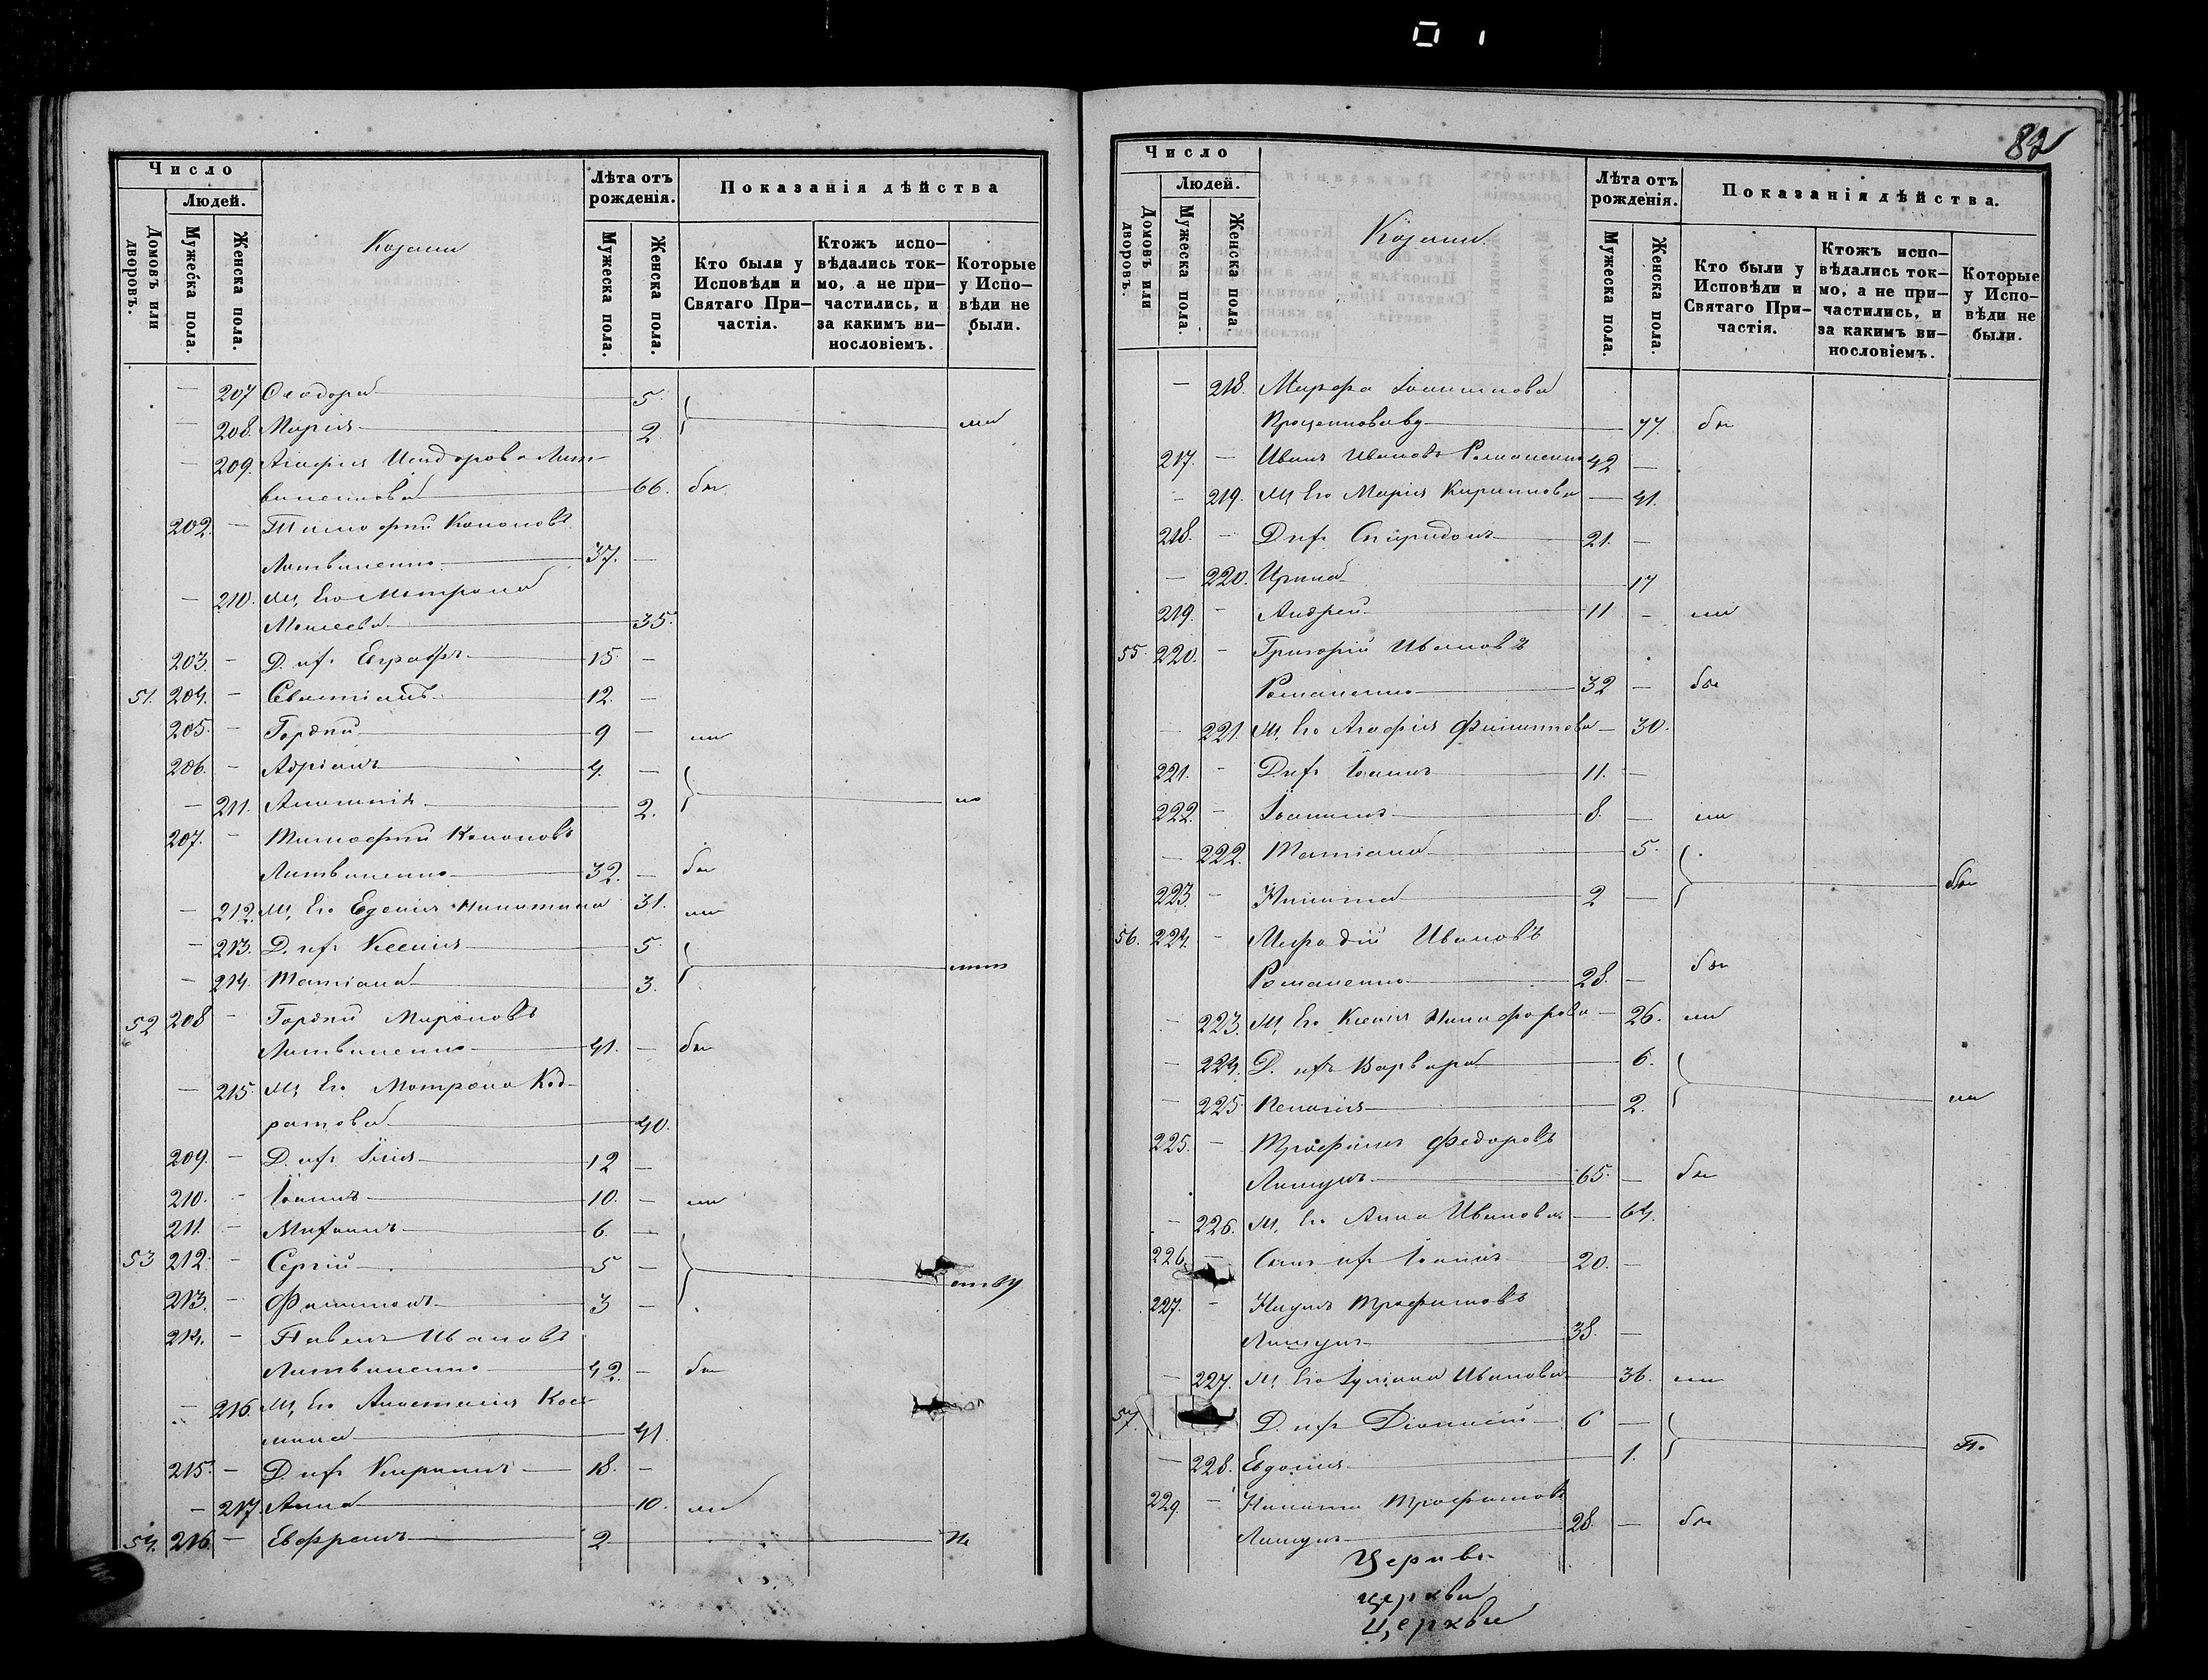 82
Число
Людей.
Домовъ или дворовъ.
Мужеска пола.
Женска пола.
Козаки
Лѣта отъ рожденія.
Мужеска пола.
Женска пола.
Показанія дѣйства
Кто были у Исповѣди и Святаго Причастія.
Ктожъ исповѣдались токмо, а не причастились, и за какимъ винословіемъ.
Которые у Исповѣди не были.
— 207 Ѳеодора 5.
— 208. Марія 2
— 209. Агафія Исидорова Лит-
виненкова 66. бы
202. — Тимофей Кононовъ
Литвиненко 37. —
— 210. Ж. Его Матрона
Моисеева 35.
203. — Д. ихъ Евграфъ 15 —
51. 204. — Севастіанъ 12. —
205. — Гордѣй 9 —
206. — Адріанъ 4. —
— 211. Анастасія 2.
207. — Тимофей Кононовъ
Литвиненко 32. — бы
— 212. Ж. Его Евгенія Никитина 31.
— 213. Д. ихъ Ксенія 5
— 214. Татіана 3.
52 208 — Гордѣй Мироновъ
Литвиненко 41. — бы
— 215. Ж. Его Матрона Код-
ратова 40.
209. — Д. ихъ Илія 12 —
210. — Іоаннъ 10. —
211. — Михаилъ 6. —
53 212. — Сергій 5 —
213. — Филимонъ 3 —
214. — Павелъ Ивановъ
Литвиненко 42. — бы
— 216. Ж. Его Анастасія Кось-
мина 41
215. — Д. ихъ Кипріанъ 18. —
— 217. Анна 10.
54. 216. — Евфремъ 2
Число
Людей.
Домовъ или дворовъ.
Мужеска пола.
Женска пола.
Козаки.
Лѣта отъ рожденія.
Мужеска пола.
Женска пола.
Показанія дѣйства.
Кто были у Исповѣди и Святаго Причастія.
Ктожъ исповѣдались токмо, а не причастились, и за какимъ винословіемъ.
Которые у Исповѣди не были.
— 218. Марфа Іоакимова
77. бы
217. — Иванъ Ивановъ Романенко 42 —
— 219. Ж. Его Марія Кириллова — 41.
218. — Д. ихъ Спиридонъ 21. —
— 220. Ирина 17
219. — Андрей 11 —
55. 220. — Григорій Ивановъ
Романенко 32 — бы
— 221. Ж. Его Агафія Филиппова — 30.
221. — Д. ихъ Іоаннъ 11. —
222. — 8. —
— 222. Татіана 5.
223. — Никита 2 —
56. 224. — Меѳодій Ивановъ
Романенко 28. — бы
— 223. Ж. Его Ксенія Никифорова — 26.
— 224. Д. ихъ Варвара 6.
— 225. 2.
225. — Трофимъ Федоровъ
65. — бы
— 226. Ж. Его Анна Иванова — 64.
226. — Сынъ ихъ Іоаннъ 20. —
227. — Наумъ Трофимовъ
38. —
— 227. Ж. Его Іуліана Иванова 36.
57. Д. ихъ Діонисій 6 —
— 228. Евдокія 1.
229. — Никита Трофимовъ
28. — бы
Церкви
церкви
церкви